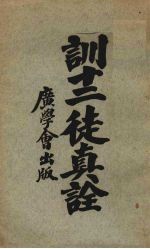 訓十二徒真詮
廣學會出版